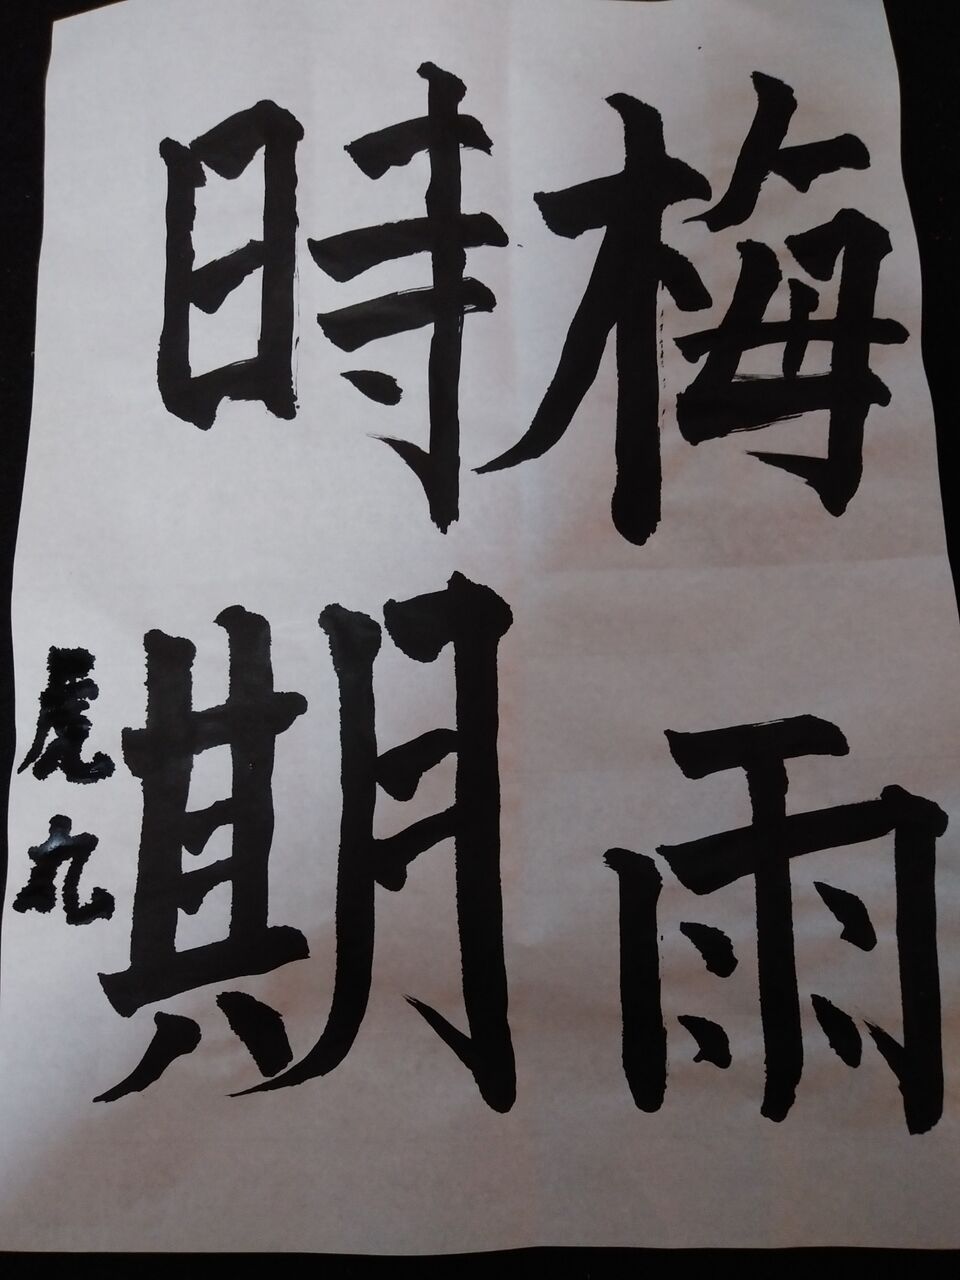 梅雨
時期
虎丸